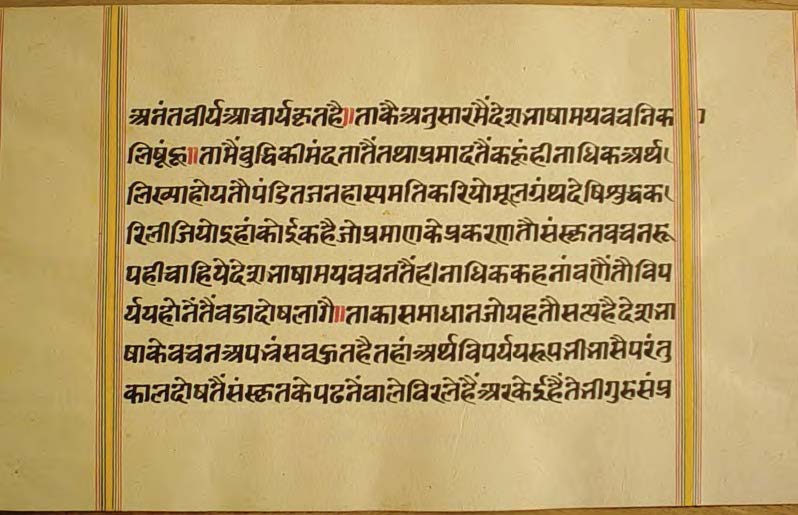 अनंतवीर्यआचार्यकृतहै॥ताकैअनुसारमैंदेशभाषामयवचनिक
लिषूंहूं॥तामैंबुद्धिकीमंदतातैंतथाप्रमादतैंकहूंहीनाधिकअर्थ
लिख्याहोयतौपंडितजनहास्यमतिकरियोमूलग्रंथदेषिशुद्धक
रिलीजियोइहांकोईकहैजोप्रमाणकेप्रकरणतौसंस्कृतवचनरू
पहीचाहियेदेशभाषामयवचनतैंहीनाधिककहनांवणैंतौविप
र्ययहोनेंतैंवडादोषलागै॥ताकासमाधानजोयहतौसत्यहैदेशभा
षाकेवचनअपभ्रंसवहुतहैतहांअर्थविपर्ययरूपभीभासैपरंतु
कालदोषतैंसंस्कृतकेपढनेंवालेविरलेहैंअरकेईहैंतेभीगुरुसंप्र